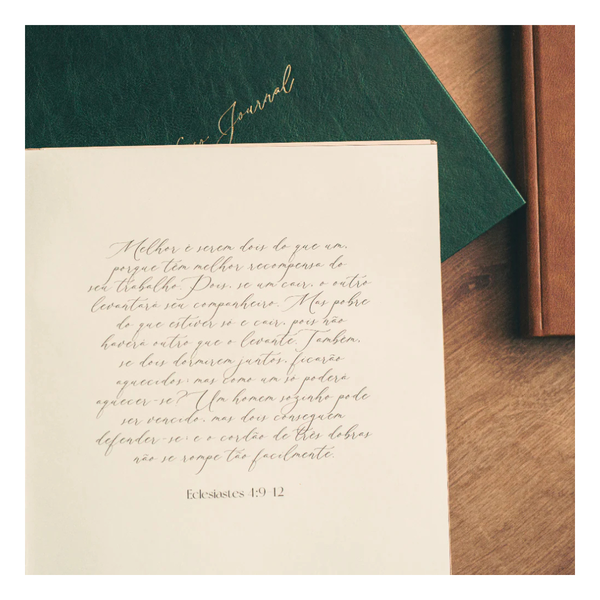 Journal
Melhor e serem dois do que um,
porque têm melhor recompensa do
seu trabalho. Pois, se um cair, o outro
levantará seu companheiro. Mas pobre
do que estiver só e cair, pois não
haverá outro que o levante. Também,
se dois dormirem juntos, ficarão
aquecidos; mas como um só poderá
aquecer-se? Um homem sozinho pode
ser vencido, mas dois conseguem
defender-se; e o cordão de três dobras
não se rompe tão facilmente.
Eclesiastes 4:9-12